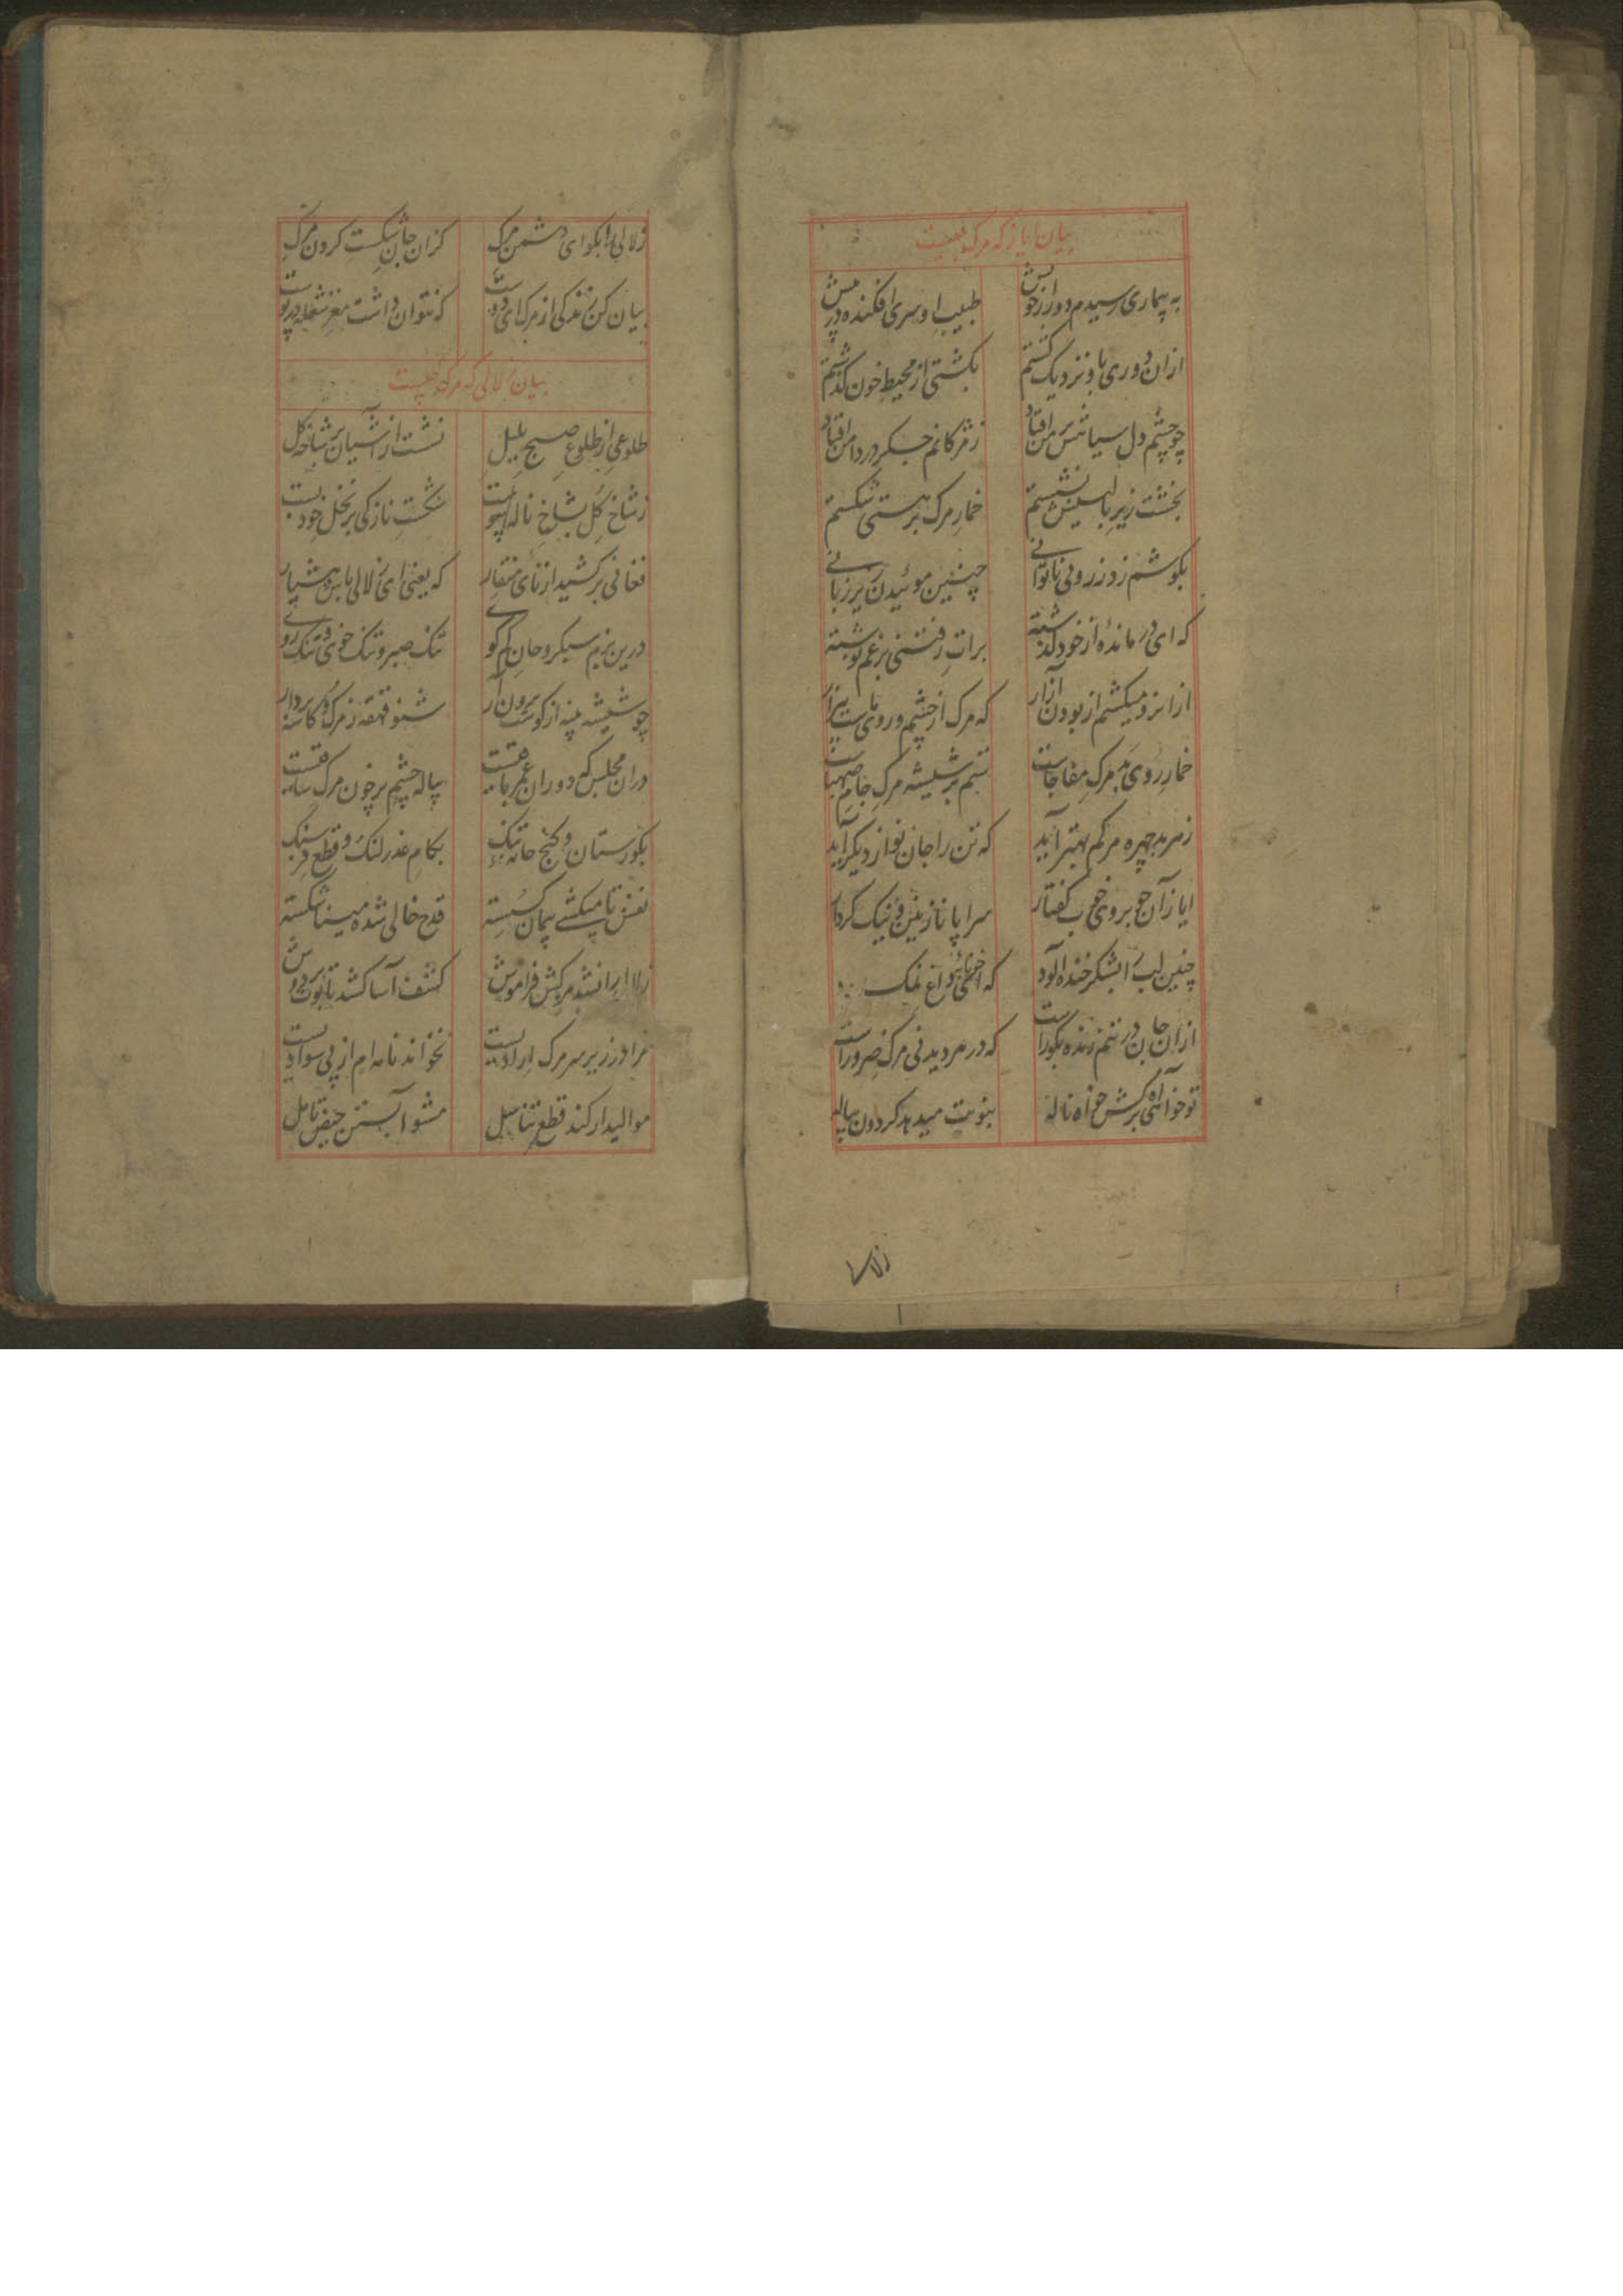 بیان ایاز که مرک چیست
به بیماری رسیدم دور از خویش طبیب او سری افکنده در پیش
ازان دوری باو نزدیک کشتم بکشتی از محیط خون کذشتم
چو چشم دل سیاهش بر من افتاد ز مژکانم جکر در دامن افتاد
بخشت زیر بالینش نشستم خمار مرک بر هستی شکستم
بکوشم زد ز روی ناتوانی چنین موئیدن زیر زبانی
که ای درمانده از خود کذشته برات رفتنی بر غم نوشته
ازانرو میکشم از بودن آزار که مرک از چشم و روی ماست بیزار
خمار روی بد مرک مفاجاست ستم بر شیشه مرک جام صهباست
ز مر بد چهره مرکم بهتر آید که تن را جان نو از دیکر آید
ایاز آن خوبروی خوب کفتار سراپا نازنین و نیک کردار
چنین لب را بشکر خنده آلود که نمک
ازان جان در تنم زنده بکور است که در هر دیدنی مرک ضرور است
تو خواهی آه برکش خواه ناله بنوبت میدهد کردون پیاله
زلالی
زلالی را بکو ای دشمن مرک کزان جان شکست کردن مرک
بیان کن زندکی از مرک ای دوست که نتوان داشت مغز شعله در پوست
بیان زلالی که مرک چیست
طلوعی از طلوع صبح بلبل نشست از آشیان بر شاخه کل
ز شاخ کل بشاخ ناله پیوست شکست نازکی بر نخل خود بست
فغانی برکشید از نای منقار که یعنی ای زلالی باش هشیار
درین بزم سبکروحان کم کوی تنک صبر و تنک خوی و تنک روی
چو شیشه پنبه از کوشت برون آر شنو قهقه ز مرک و کاسه بردار
دران مجلس که دوران عمر باقیست پیاله چشم پر خون مرک ساقیست
بکورستان و کنج خانه تنک بکام عذر لنک و قطع فرسنک
نفس تا میکشی پیمان کسسته قدح خالی شده مینا شکسته
زلالی را نشد مرکش فراموش کشف آسا کشد تابوت بر دوش
مرا در زیر سر مرک ارادیست نخواند نامه ام از بی سوادیست
موالید ار کند قطع تناسل مشو آبستن حیض تامل